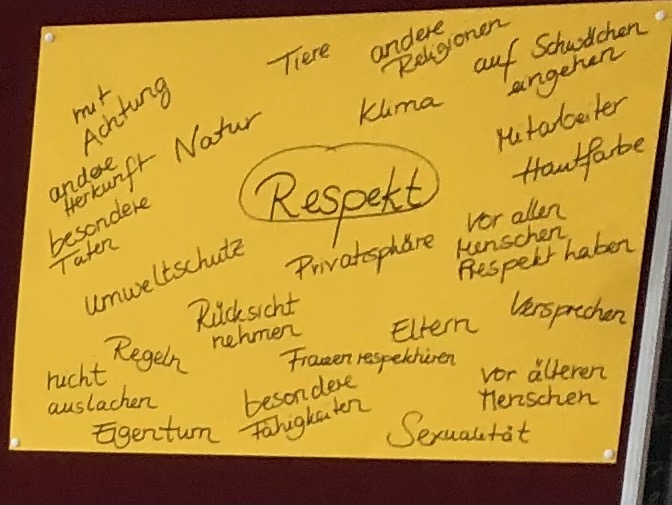 Tiere
andere
Religionen
auf Schwächen
eingehen
mit
Achtung
Natur
Klima
Mitarbeiter
Hautfarbe
andere
Herkunft
besondere
Taten
Respekt
Umweltschutz
Privatsphäre
vor allen
Menschen
Respekt haben
Rücksicht
nehmen
Eltern
Versprechen
Regeln
Frauen respektieren
nicht
auslachen
besondere
Fähigkeiten
vor älteren
Menschen
Eigentum
Sexualität